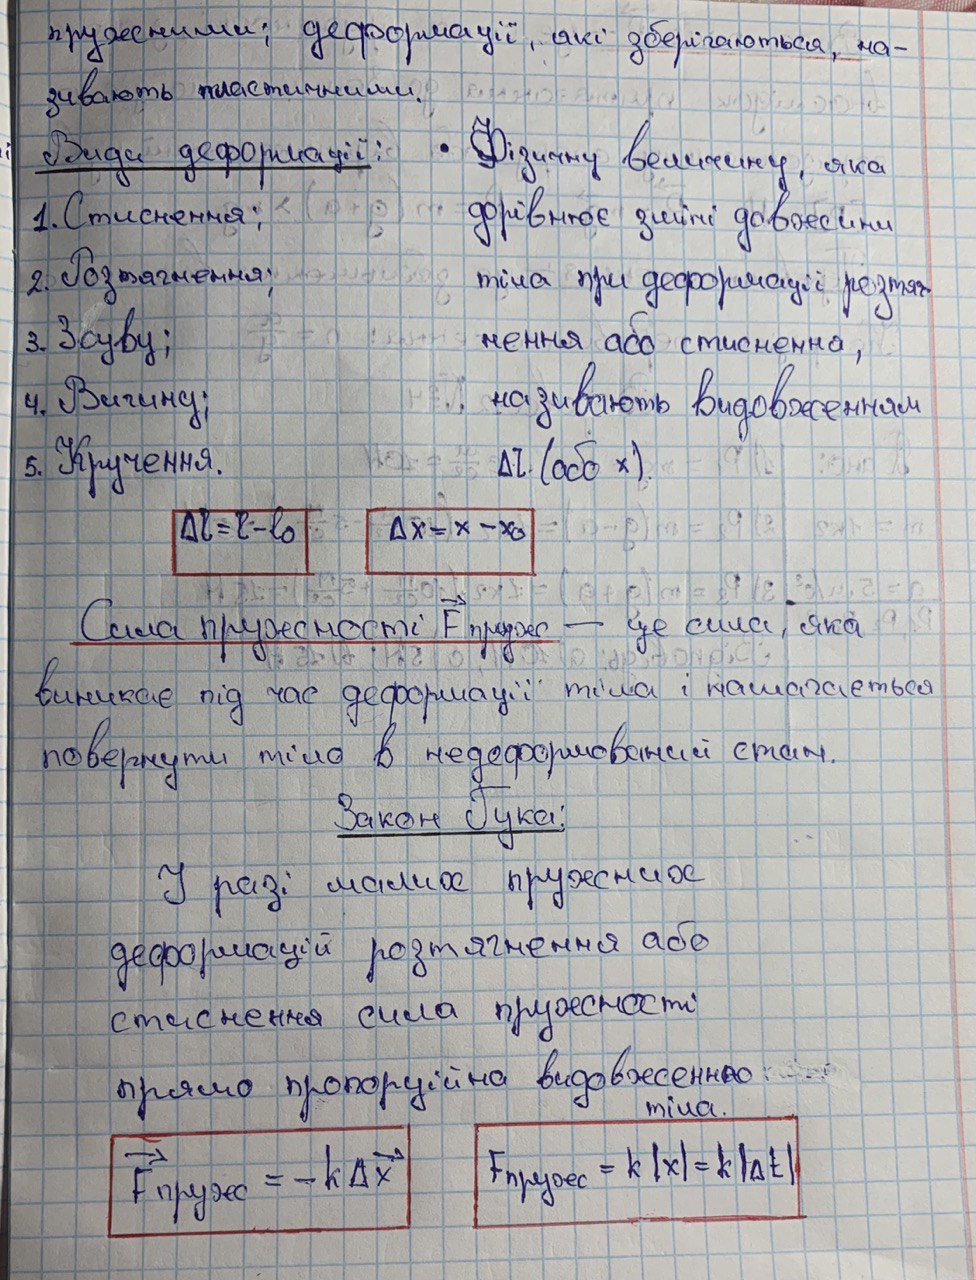 пружними; деформації, які зберігаються, на-
зивають пластичними.
Види деформації:
1. Стиснення;
2. Розтягнення;
3. Зсуву;
4. Вигину;
5. Кручення.
• Фізичну величину, яка
дорівнює зміні довжини
тіла при деформації розтяг-
нення або стисненна,
називають видовженням
Δl (або x).
Δl = l - l₀
Δx = x - x₀
Сила пружності F⃗пруж — це сила, яка
виникає під час деформації тіла і намагається
повернути тіло в недеформований стан.
Закон Гука:
У разі малих пружних
деформацій розтягнення або
стиснення сила пружності
прямо пропорційна видовженню
тіла.
F⃗пруж = -kΔx⃗
Fпруж = k|x| = k|Δl|